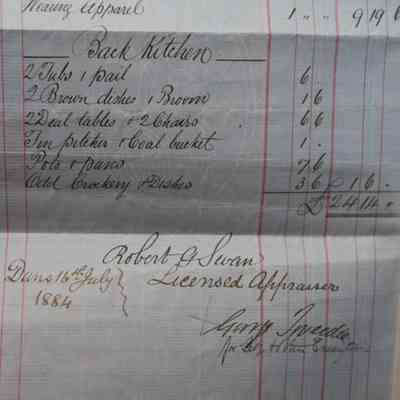 Wearing Apparel 1 " " 9 19 6
Back Kitchen
2 Tubs 1 pail 6 .
2 Brown dishes 1 Broom 1 6
2 Deal tables & 2 Chairs . 6 6
Tin pitcher & Coal bucket 1 .
Pots & pans 7 6
Odd Crockery & Dishes 3 6 1 6 .
£ 24 14 "
Robert G Swan
Licensed Appraiser
Duns 16th July
1884
George Tweedie